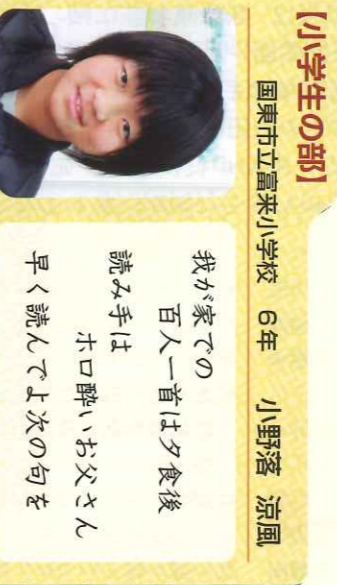 【小学生の部】
国東市立富来小学校 6年 小野落 涼風
我が家での
百人一首は夕食後
読み手は
ホロ酔いお父さん
早く読んでよ次の句を